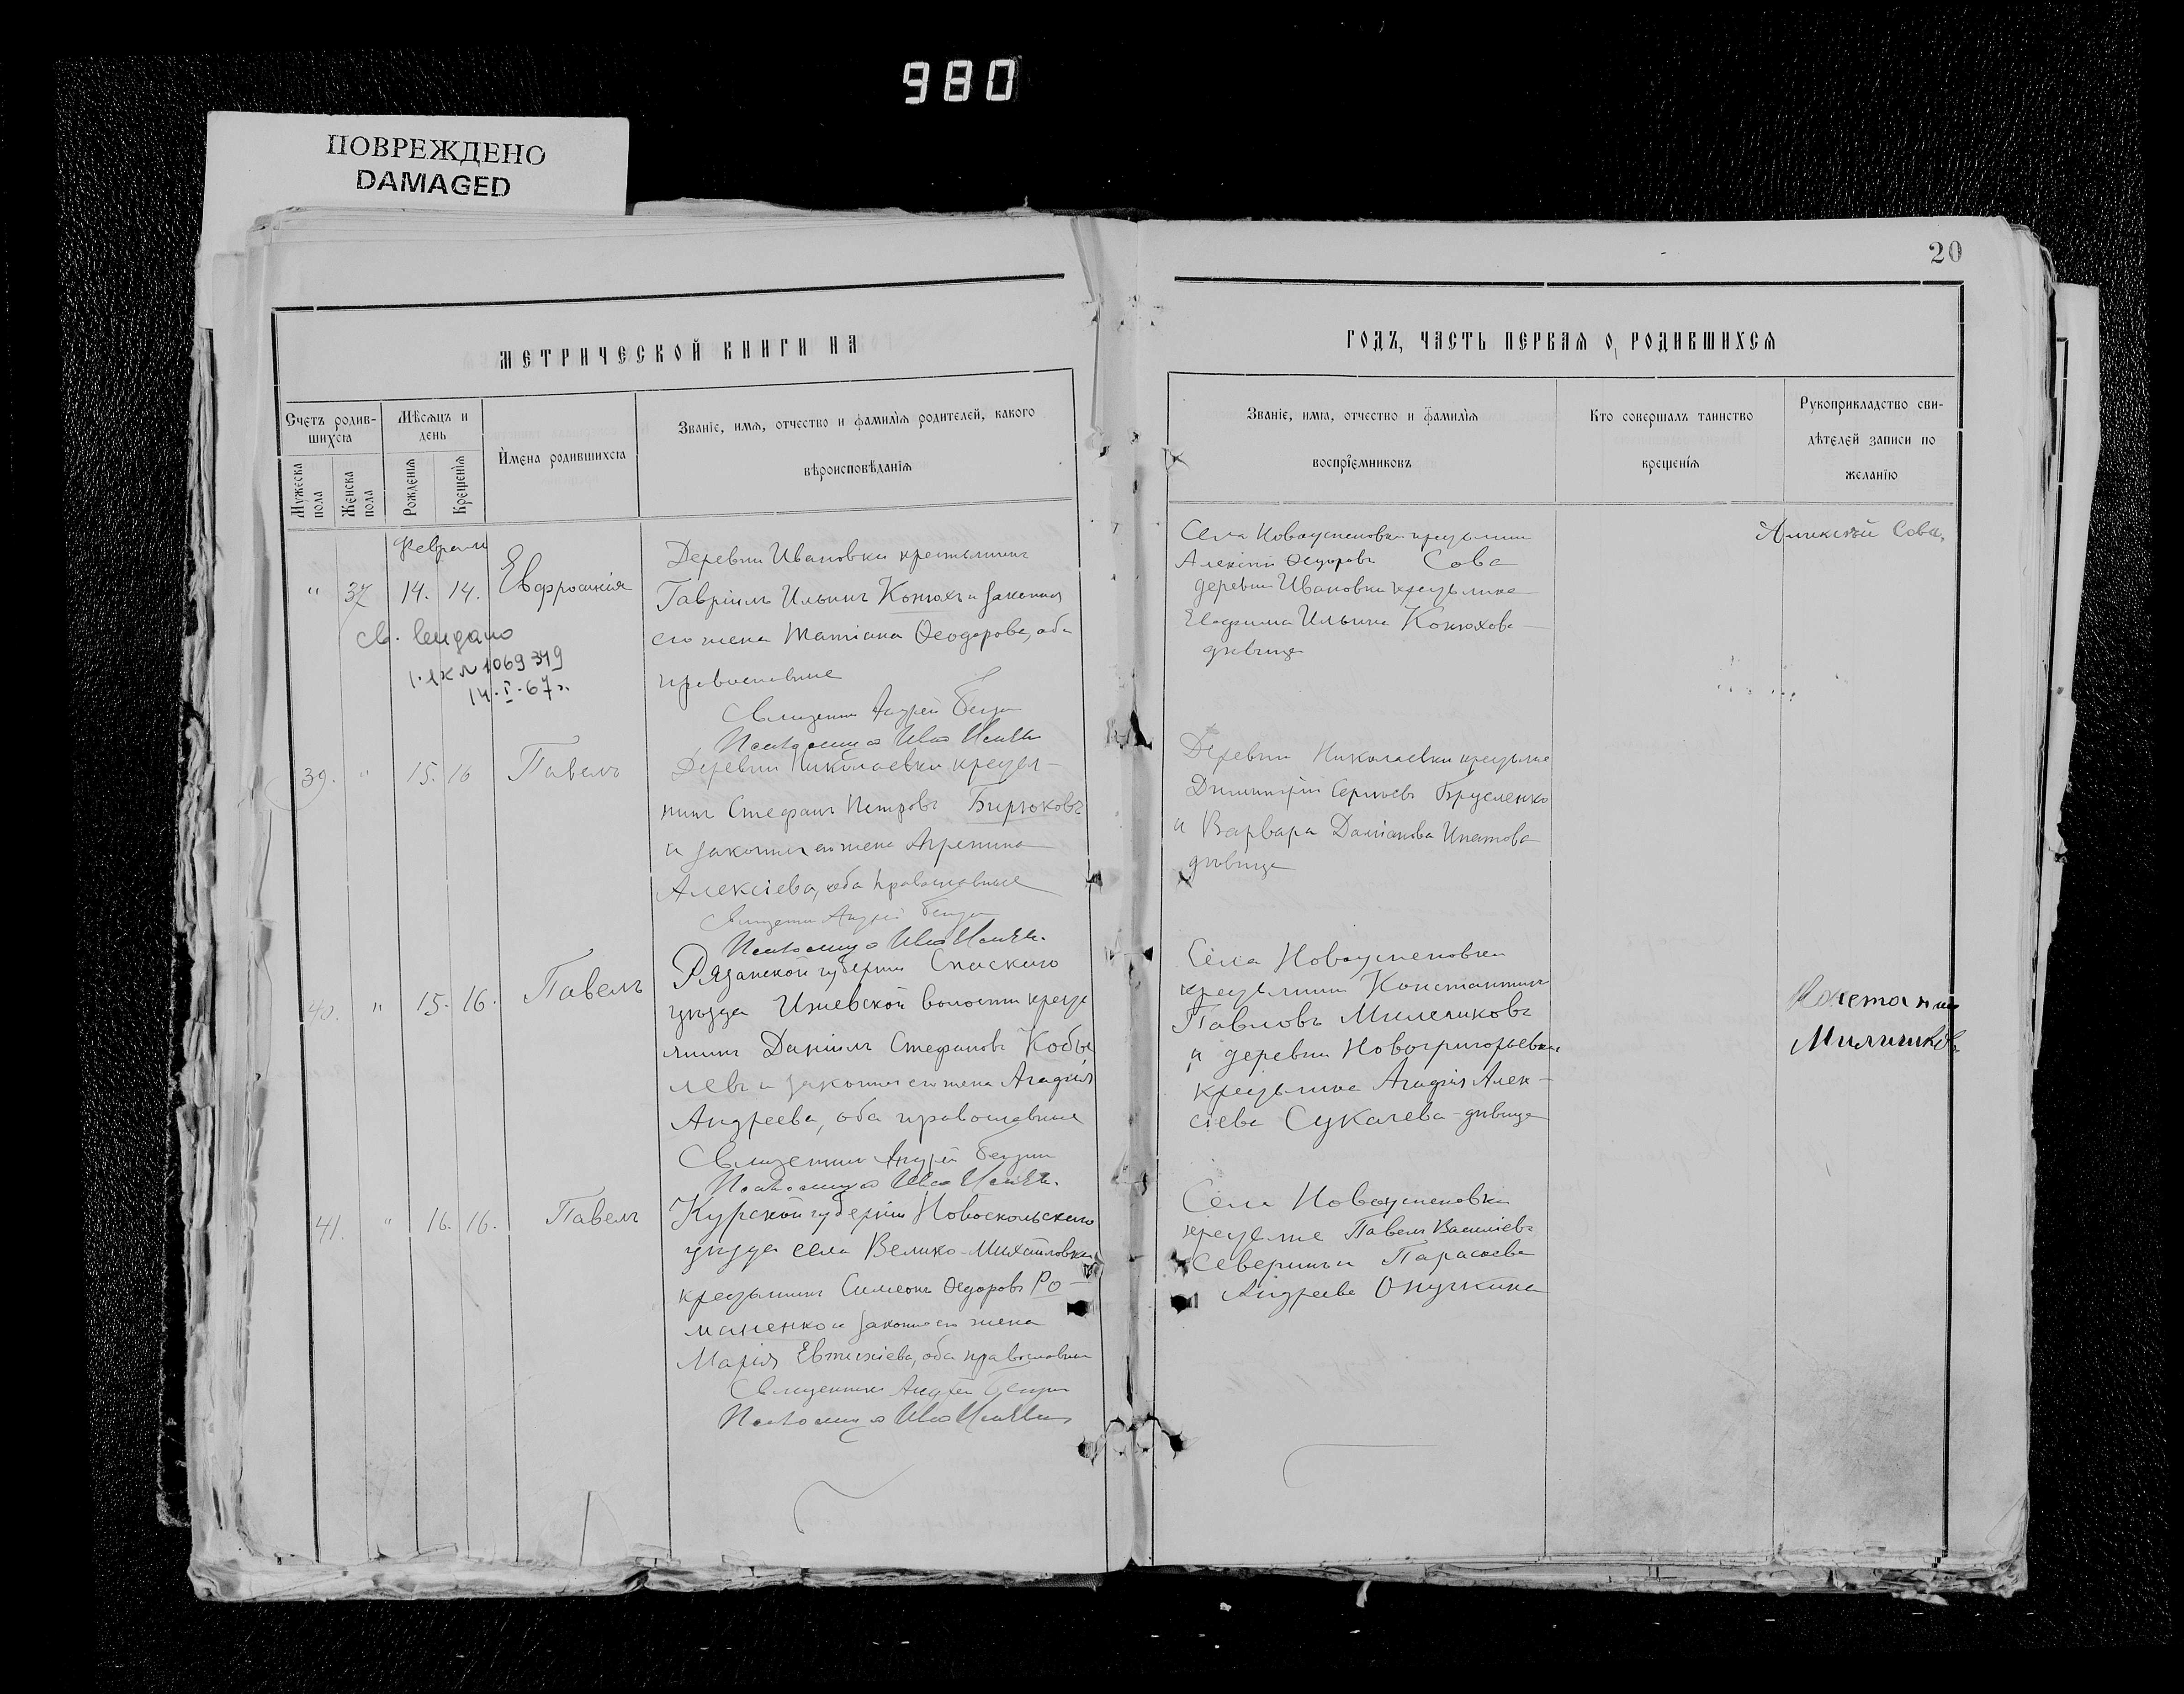 980
ПОВРЕЖДЕНО
DAMAGED
20
МЕТРИЧЕСКОЙ КНИГИ НА
ГОДЪ, ЧАСТЬ ПЕРВАЯ О РОДИВШИХСЯ
Счетъ родив-
шихся
Мужеска
пола
Женска
пола
Мѣсяцъ и
день
Рожденія
Крещенія
Имена родившихся
Званіе, имя, отчество и фамилія родителей, какого
вѣроисповѣданія
Званіе, имя, отчество и фамилія
воспріемниковъ
Кто совершалъ таинство
крещенія
Рукоприкладство сви-
дѣтелей записи по
желанію
Февраля
" 37 14. 14. Евфросинія
св. выдано
№ 1069349
14.I.67г.
Деревни Ивановки крестьянинъ
Гавріилъ Ильинъ Конюхъ и законная
его жена Татіана Ѳеодорова, оба
православные
Священникъ Андрей
Деревни Николаевки кресть-
39. " 15. 16 Павелъ
нинъ Стефанъ Петровъ Бирюковъ
и законная его жена Агрепина
Алексіева, оба православные
Священникъ Андрей
Рязанской губерніи Спаскаго
40. " 15. 16. Павелъ
уѣзда Ижевской волости кресть
янинъ Даніилъ Стефановъ Кобы
левъ и законная его жена Агафія
Андреева, оба православные
Священникъ Андрей
Курской губерніи Новоскольскаго
41. " 16. 16. Павелъ
уѣзда села Велико-Михайловки
крестьянинъ Симеонъ Ѳедоровъ Ро-
маненко и законная его жена
Марія Евтихіева, оба православные
Священникъ Андрей
Села Новоуспеновки крестьянинъ
Алексій Ѳедоровъ Сова
деревни Ивановки крестьянка
Евфимія Ильина Конюхова
дѣвица
Аликсѣй Сова
Деревни Николаевки крестьяне
Димитрій Сергіевъ Брусленко
и Варвара Даміанова Ипатова
дѣвица
Села Новоуспеновки
крестьянинъ Константинъ
Павловъ Милешковъ
и деревни Новогригорьевки
крестьянка Агафія Алек-
сіева Сукачева-дѣвица
Села Новоуспеновки
крестьяне Павелъ Василіевъ
Северинъ и Парасковія
Андреева Опучкина